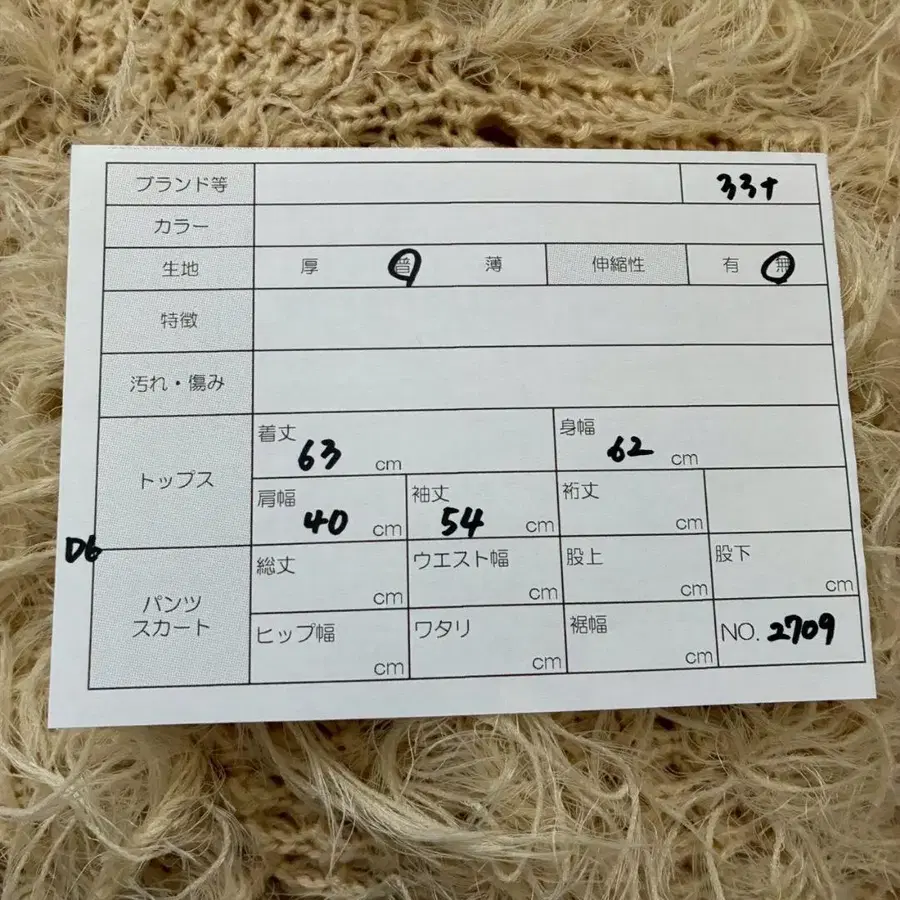 ブランド等 33+
カラー
生地 厚 普 薄 伸縮性 有 無
特徴
汚れ・傷み
トップス
着丈 63 cm 身幅 62 cm
肩幅 40 cm 袖丈 54 cm 裄丈 cm
D6
パンツ
スカート
総丈 cm ウエスト幅 cm 股上 cm 股下 cm
ヒップ幅 cm ワタリ cm 裾幅 cm NO. 2709